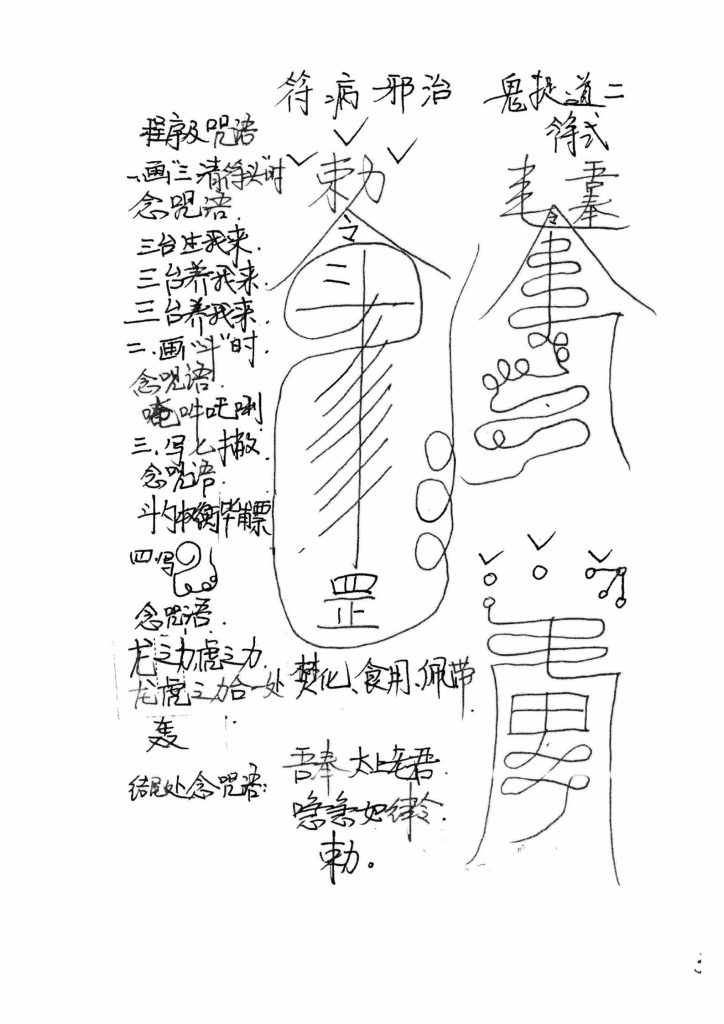 符病邪治
鬼捉道二
符式
程序及咒语
一、画"三清符头"时
念咒语.
三台生我来.
三台养我来.
三台养我来.
二.画"斗"时.
念咒语.
唵吽吒唎
三、写七撇.
念咒语.
斗 衡毕甫票
四写
念咒语.
龙之力,虎之力.
龙虎之力合一处
轰
结尾处念咒语:
勅
令
二
罡
焚化、食用、佩带.
吾奉太上老君.
急如律令.
勅。
吾
奉
令